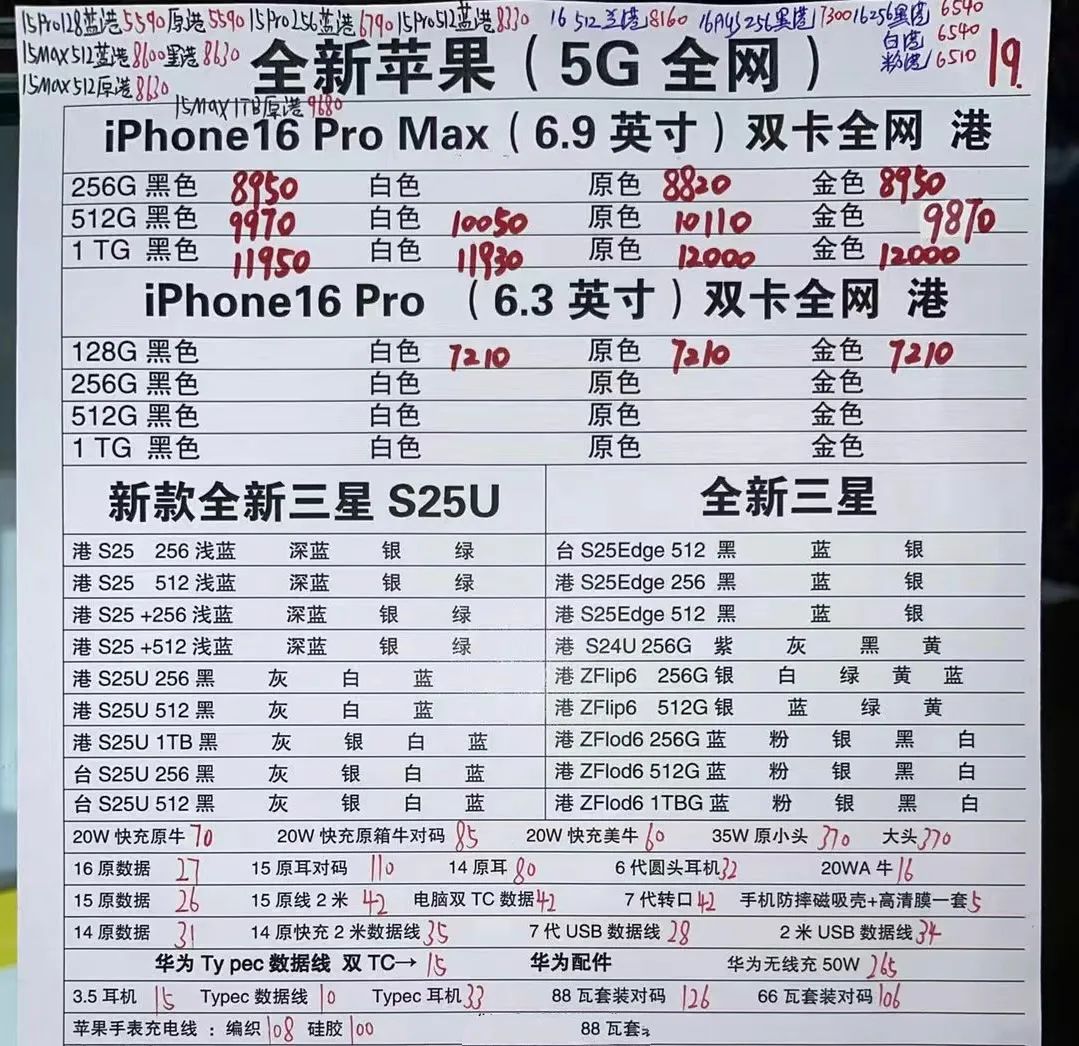 15Pro128蓝港5590原港5590 15Pro256蓝港6790 15Pro512蓝港8330 16 512兰港8160 16A4S256黑港7300 16256黑港6540
白港 6540
15MAX512蓝港8600黑港8630
粉港 6510
19.
15MAX512原港8630
15MAX1TB原港9680
全新苹果（5G 全网）
iPhone16 Pro Max（6.9 英寸）双卡全网 港
256G 黑色 8950 白色 原色 8820 金色 8950
512G 黑色 9970 白色 10050 原色 10110 金色 9870
1 TG 黑色 11950 白色 11930 原色 12000 金色 12000
iPhone16 Pro （6.3 英寸）双卡全网 港
128G 黑色 白色 7210 原色 7210 金色 7210
256G 黑色 白色 原色 金色
512G 黑色 白色 原色 金色
1 TG 黑色 白色 原色 金色
新款全新三星 S25U
港 S25 256 浅蓝 深蓝 银 绿
港 S25 512 浅蓝 深蓝 银 绿
港 S25 +256 浅蓝 深蓝 银 绿
港 S25 +512 浅蓝 深蓝 银 绿
港 S25U 256 黑 灰 白 蓝
港 S25U 512 黑 灰 白 蓝
港 S25U 1TB 黑 灰 银 白 蓝
台 S25U 256 黑 灰 银 白 蓝
台 S25U 512 黑 灰 银 白 蓝
全新三星
台 S25Edge 512 黑 蓝 银
港 S25Edge 256 黑 蓝 银
港 S25Edge 512 黑 蓝 银
港 S24U 256G 紫 灰 黑 黄
港 ZFlip6 256G 银 白 绿 黄 蓝
港 ZFlip6 512G 银 蓝 绿 黄
港 ZFlod6 256G 蓝 粉 银 黑 白
港 ZFlod6 512G 蓝 粉 银 黑 白
港 ZFlod6 1TBG 蓝 粉 银 黑 白
20W 快充原牛 70 20W 快充原箱牛对码 85 20W 快充美牛 60 35W 原小头 370 大头 370
16 原数据 27 15 原耳对码 110 14 原耳 80 6 代圆头耳机 32 20WA 牛 16
15 原数据 26 15 原线 2 米 42 电脑双 TC 数据 42 7 代转口 42 手机防摔磁吸壳+高清膜一套 5
14 原数据 31 14 原快充 2 米数据线 35 7 代 USB 数据线 28 2 米 USB 数据线 34
华为 Ty pec 数据线 双 TC→ 15 华为配件 华为无线充 50W 265
3.5 耳机 15 Typec 数据线 10 Typec 耳机 33 88 瓦套装对码 126 66 瓦套装对码 106
苹果手表充电线 ：编织 108 硅胶 100 88 瓦套